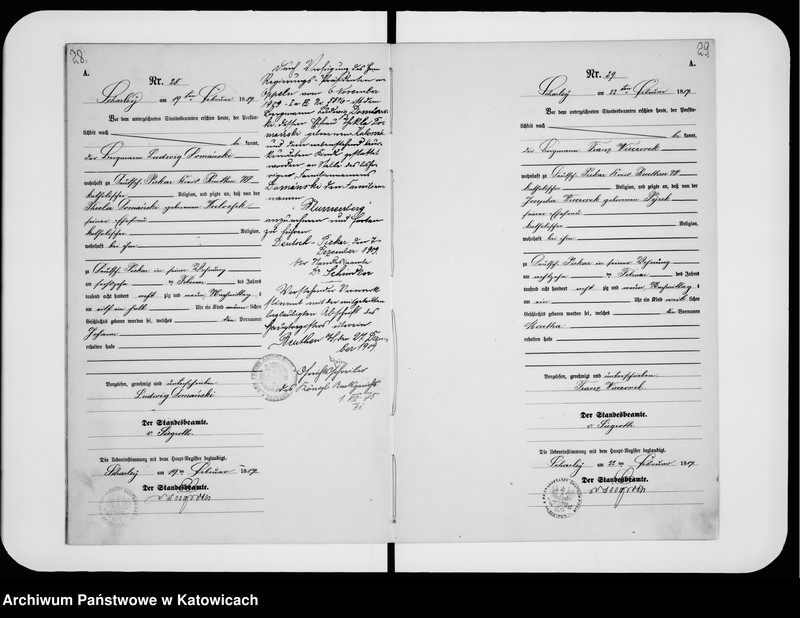 28.
A.
Nr. 28
Scharley am 19ten Februar 1889.
Vor dem unterzeichneten Standesbeamten erschien heute, der Persön-
lichkeit nach
be kannt,
der Bergmann Ludwig Domański
wohnhaft zu Deutsch-Piekar Kreis Beuthen
katholischer Religion, und zeigte an, daß von der
Domański geborenen
seiner Ehefrau
katholischer Religion,
wohnhaft bei ihm
zu Deutsch-Piekar in seiner Wohnung
am ten Februar des Jahres
tausend acht hundert acht zig und neun Vormittag s
um elf ein halb Uhr ein Kind männ lichen
Geschlechts geboren worden sei, welches den Vornamen
Johann
erhalten habe
Vorgelesen, genehmigt und unterschrieben
Ludwig Domański
Der Standesbeamte.
v. Siegroth
Die Uebereinstimmung mit dem Haupt-Register beglaubigt.
Scharley am 19ten Februar 1889
Der Standesbeamte.
v. Siegroth
Durch Verfügung des Herrn
Regierungs-Präsidenten in
Oppeln vom 6. November
1909 ist dem
Bergmann Ludwig Domański
dessen Ehefrau
und dem
Kinde gestattet
worden an Stelle des
Familiennamens
Domański den Familien-
namen
"Blumenberg"
anzunehmen und fortan
zu führen.
Deutsch-Piekar, den 7.
Dezember 1909.
Der Standesbeamte
Schindler
Vorstehender Vermerk
stimmt mit der
beglaubigten Abschrift des
Hauptregisters überein
Beuthen O/S den 27. Dezem-
ber 1909.
Gerichtsschreiber
des Königl. Amtsgerichts
29
A.
Nr. 29
Scharley am 22ten Februar 1889.
Vor dem unterzeichneten Standesbeamten erschien heute, der Persön-
lichkeit nach
be kannt,
der Bergmann Franz Wieczorek
wohnhaft zu Deutsch-Piekar Kreis Beuthen
katholischer Religion, und zeigte an, daß von der
Josepha Wieczorek geborenen
seiner Ehefrau
katholischer Religion,
wohnhaft bei ihm
zu Deutsch-Piekar in seiner Wohnung
am ten Februar des Jahres
tausend acht hundert acht zig und neun Nachmittag s
um ein Uhr ein Kind weib lichen
Geschlechts geboren worden sei, welches den Vornamen
Martha
erhalten habe
Vorgelesen, genehmigt und unterschrieben
Franz Wieczorek
Der Standesbeamte.
v. Siegroth
Die Uebereinstimmung mit dem Haupt-Register beglaubigt.
Scharley am 22ten Februar 1889
Der Standesbeamte.
v. Siegroth
Archiwum Państwowe w Katowicach